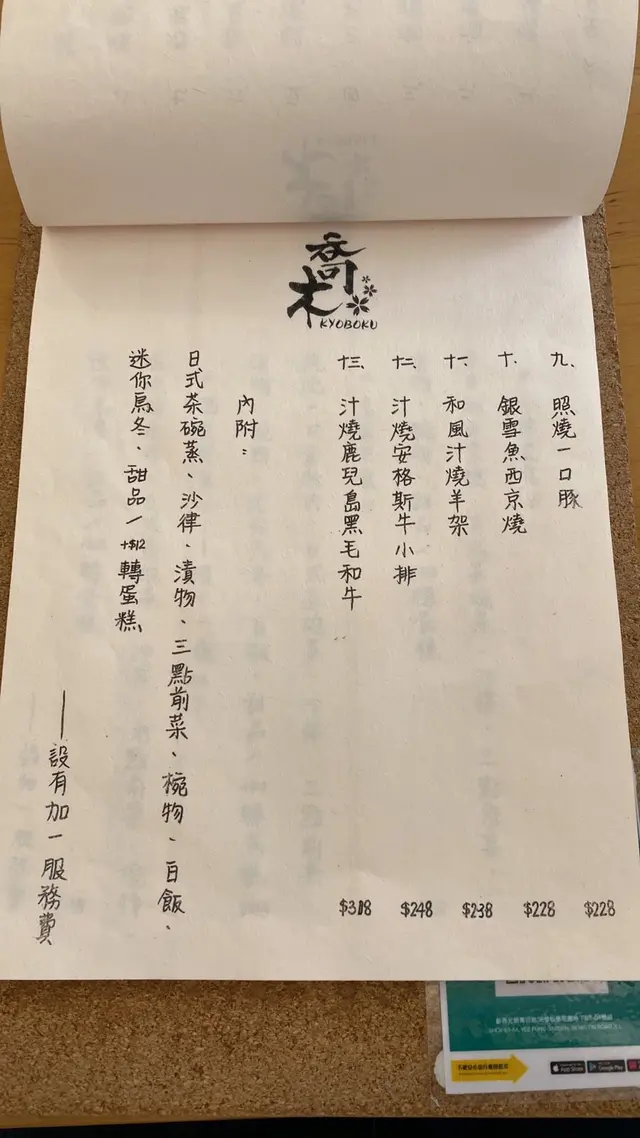 喬木
KYOBOKU
九、照燒一口豚 $228
十、銀雪魚西京燒 $228
十一、和風汁燒羊架 $238
十二、汁燒安格斯牛小排 $248
十三、汁燒鹿兒島黑毛和牛 $318
內附：
日式茶碗蒸、沙律、漬物、三點前菜、椀物、白飯、
迷你烏冬、甜品/+$12轉蛋糕
——設有加一服務費
App Store
Google Play